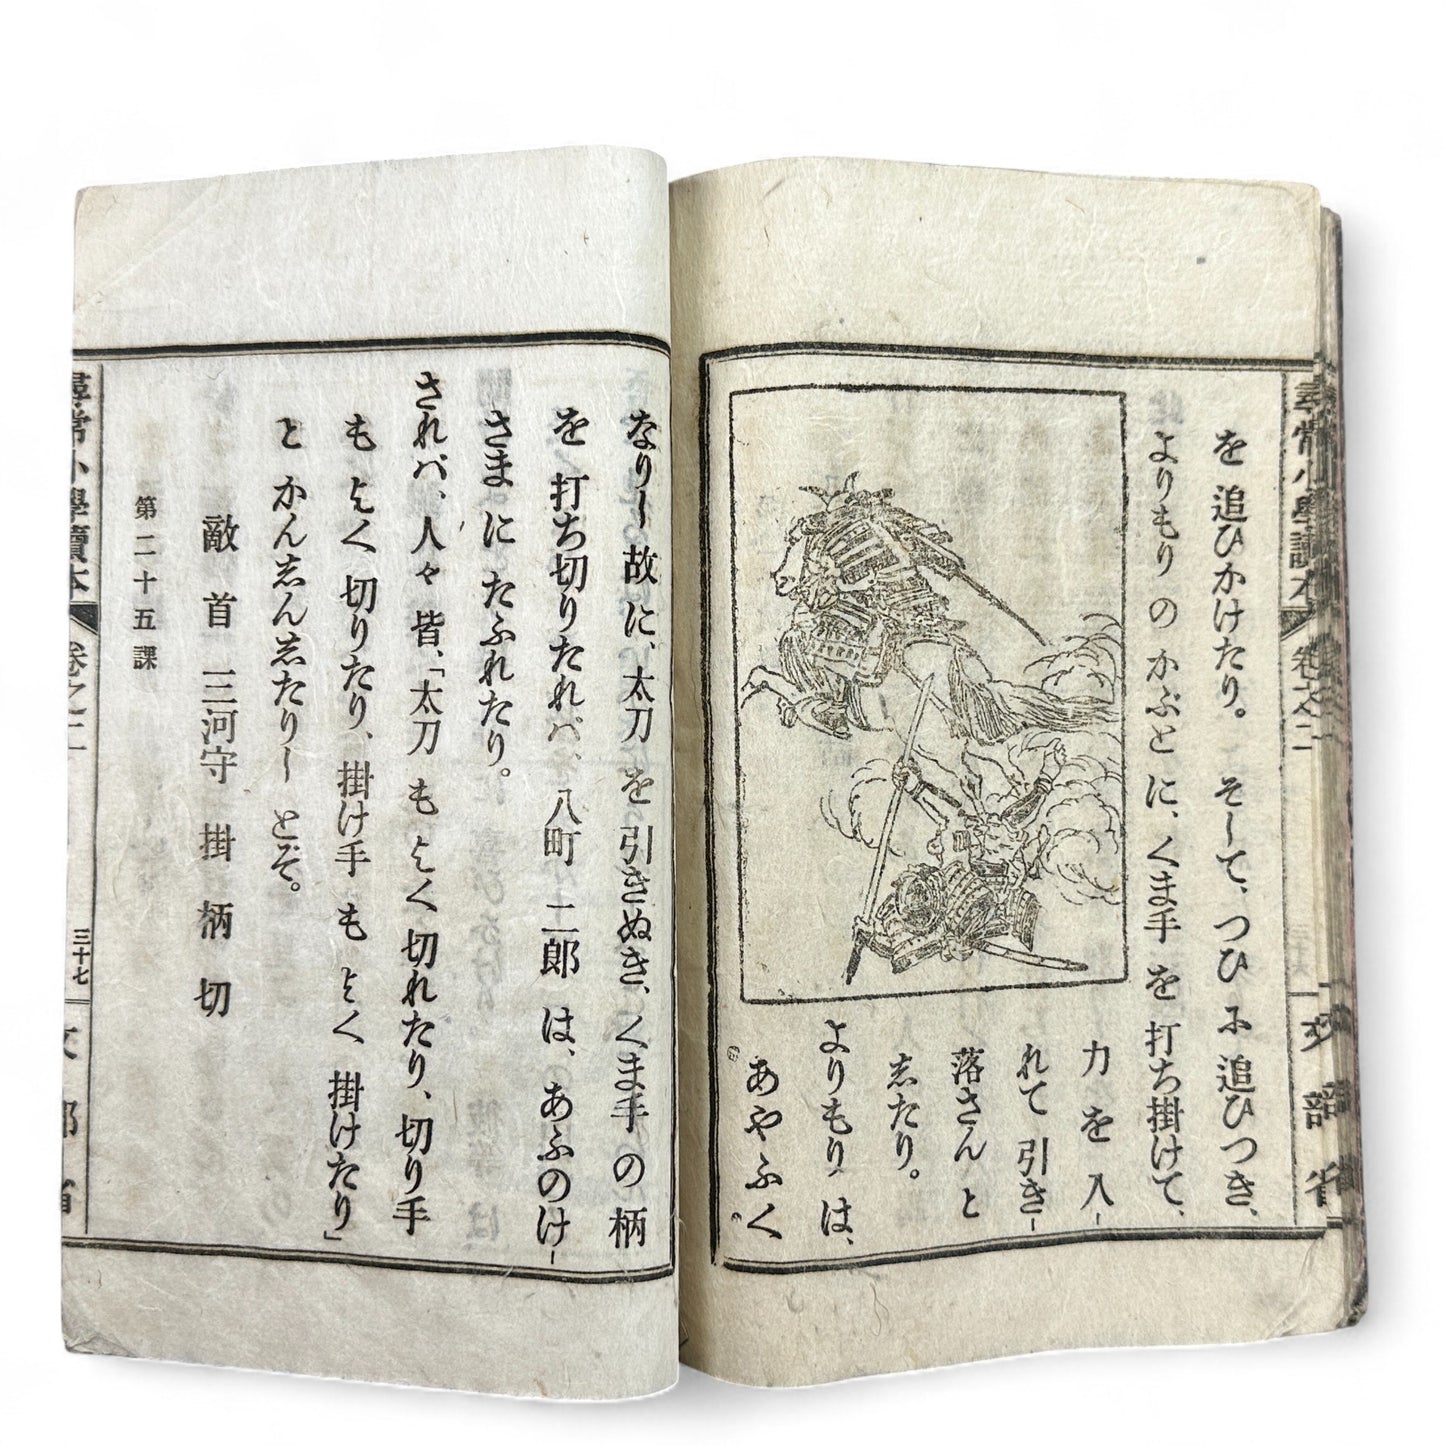 尋常小學讀本 卷之二 文部省
を 追ひかけたり。 そして、つひ に 追ひつき、
よりもり の かぶと に、くま手 を 打ち掛けて、
力 を 入
れて 引き
落さん と
志たり。
よりもり は、
あやふく
なりし 故に、太刀 を 引きぬき、くま手 の 柄
を 打ち切りたれバ、八町 二郎 は、あふのけ
さま に たふれたり。
されバ、人々 皆、「太刀 も よく 切れたり、切り手
も よく 切りたり、掛け手 も よく 掛けたり」
と かん志ん志たりし とぞ。
第二十五課
敵 首 三河守 掛 柄 切
尋常小學讀本 卷之二 三十七 文部省